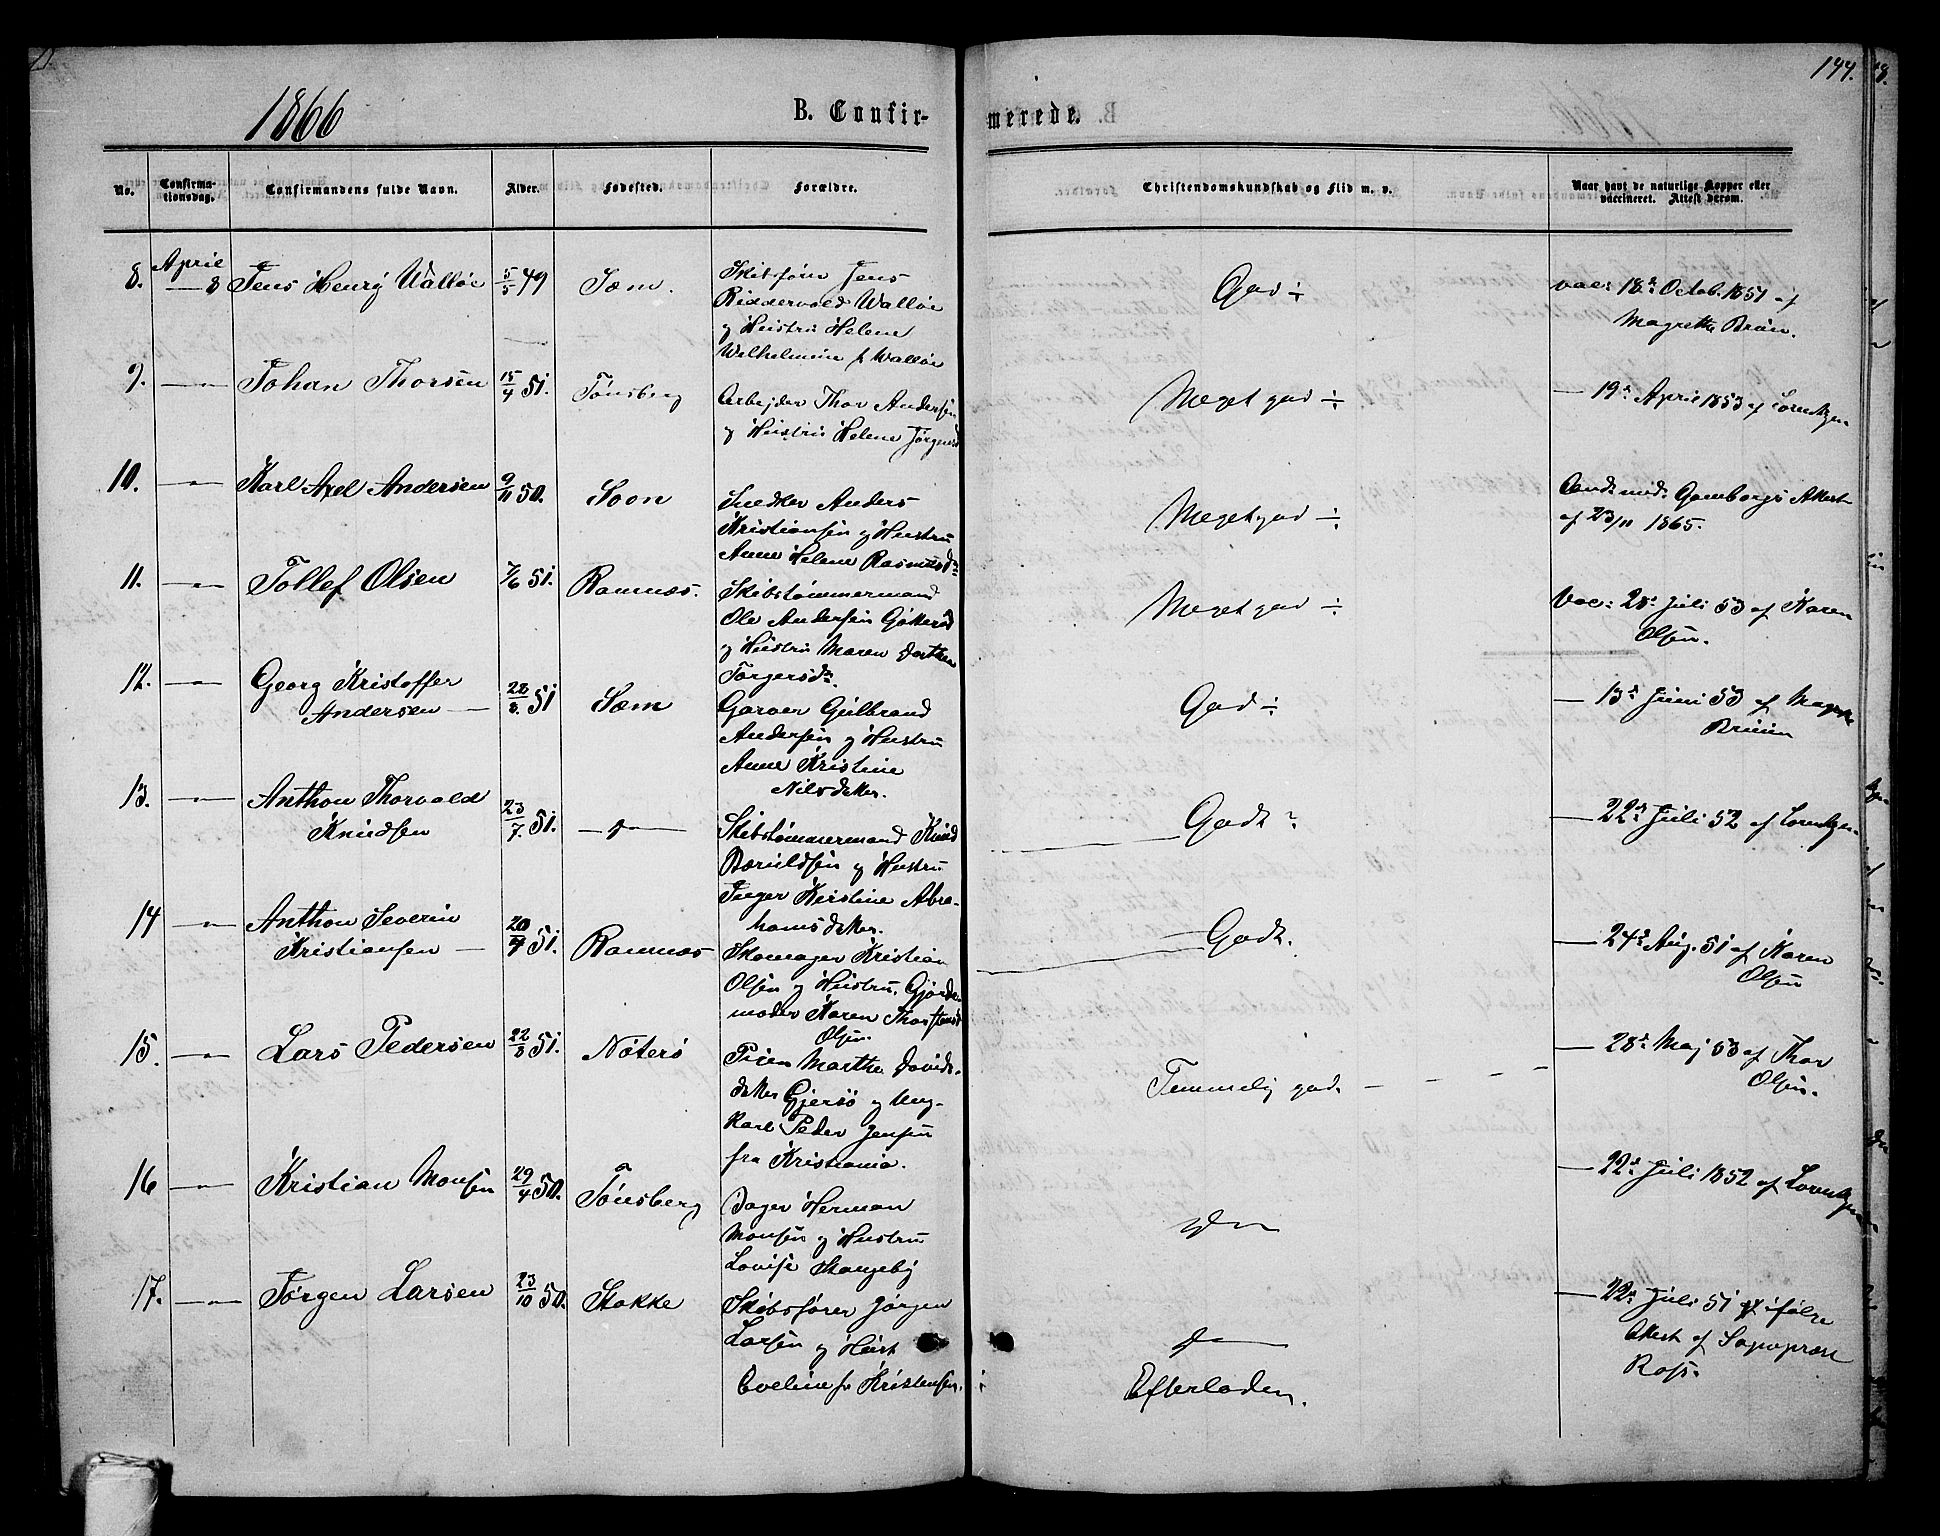 1866
B. Confir-
merede.
144.
No.
Confirma-
tionsdag.
Confirmandens fulde Navn.
Alder.
Fødested.
Forældre.
Christendomskundskab og Flid m. v.
Naar havt de naturlige Kopper eller
vaccineret. Attest derom.
8. April 8 Jens Henry Walløe 5/5 49 Sæm. Skibsfører Jens
Riddervold Walløe
og Hustru Helene
Wilhelmine f. Walløe
God ÷
vac: 18de Octob. 1851 af
Magrethe Bruun.
9. — Johan Thorsen 15/4 51. Tønsberg Arbejder Thor Andersen
og Hustru Helene Jørgensd
Meget god ÷
— 19de April 1853 af Lorentzen
10. — Karl Axel Andersen 9/11 50. Soon Snedker Anders
Kristiansen og Hustru
Anne Helene Rasmusdr
Meget god ÷
Cand. med. Gamborgs Attest
af 23/11 1865.
11. — Tollef Olsen 7/6 51. Ramnæs. Skibstømmermand
Ole Andersen
og Hustru Maren Dorthea
Torgersdr.
Meget god ÷
Vac: 28de Juli 53 af Karen
Olsen.
12. — Georg Kristoffer
Andersen — 22/8 51 Sæm Garver Gulbrand
Andersen og Hustru
Anne Kristine
Nilsdatter.
God ÷
— 13de Juni 53 af Magrethe
Bruun
13. — Anthon Thorvald
Knudsen 23/7 51. — Skibstømmermand Knud
og Hustru
Inger Kirstine Abra-
hamsdatter.
Godt
— 22de Juli 52 af Lorentzen
14 — Anthon Severin
Kristiansen — 20/7 51. Ramnæs Skomager Kristian
Olsen og Hustru, Gjorde-
moder Karen Thorstensd
Olsen.
Godt.
— 24de Aug. 51 af Karen
Olsen
15. — Lars Pedersen 22/8 51. Nøterø Pigen Marthe Davids-
datter Gjersø og Ung-
karl Peder Jensen
fra Kristiania.
Temmelig god.
— 28de Maj 53 af Thor
Olsen.
16 — Kristian Monsen 29/4 50. Tønsberg Bager Herman
Monsen og Hustru
Lovise
do
— 22de Juli 1852 af Lorentzen
17. — Jørgen Larsen 23/10 50. Stokke Skibsfører Jørgen
Larsen og Hust
Eveline f. Kristensen.
do
Efterladen.
— 22de Juli 51 ifølge
Attest af Sognepræst
Ross.